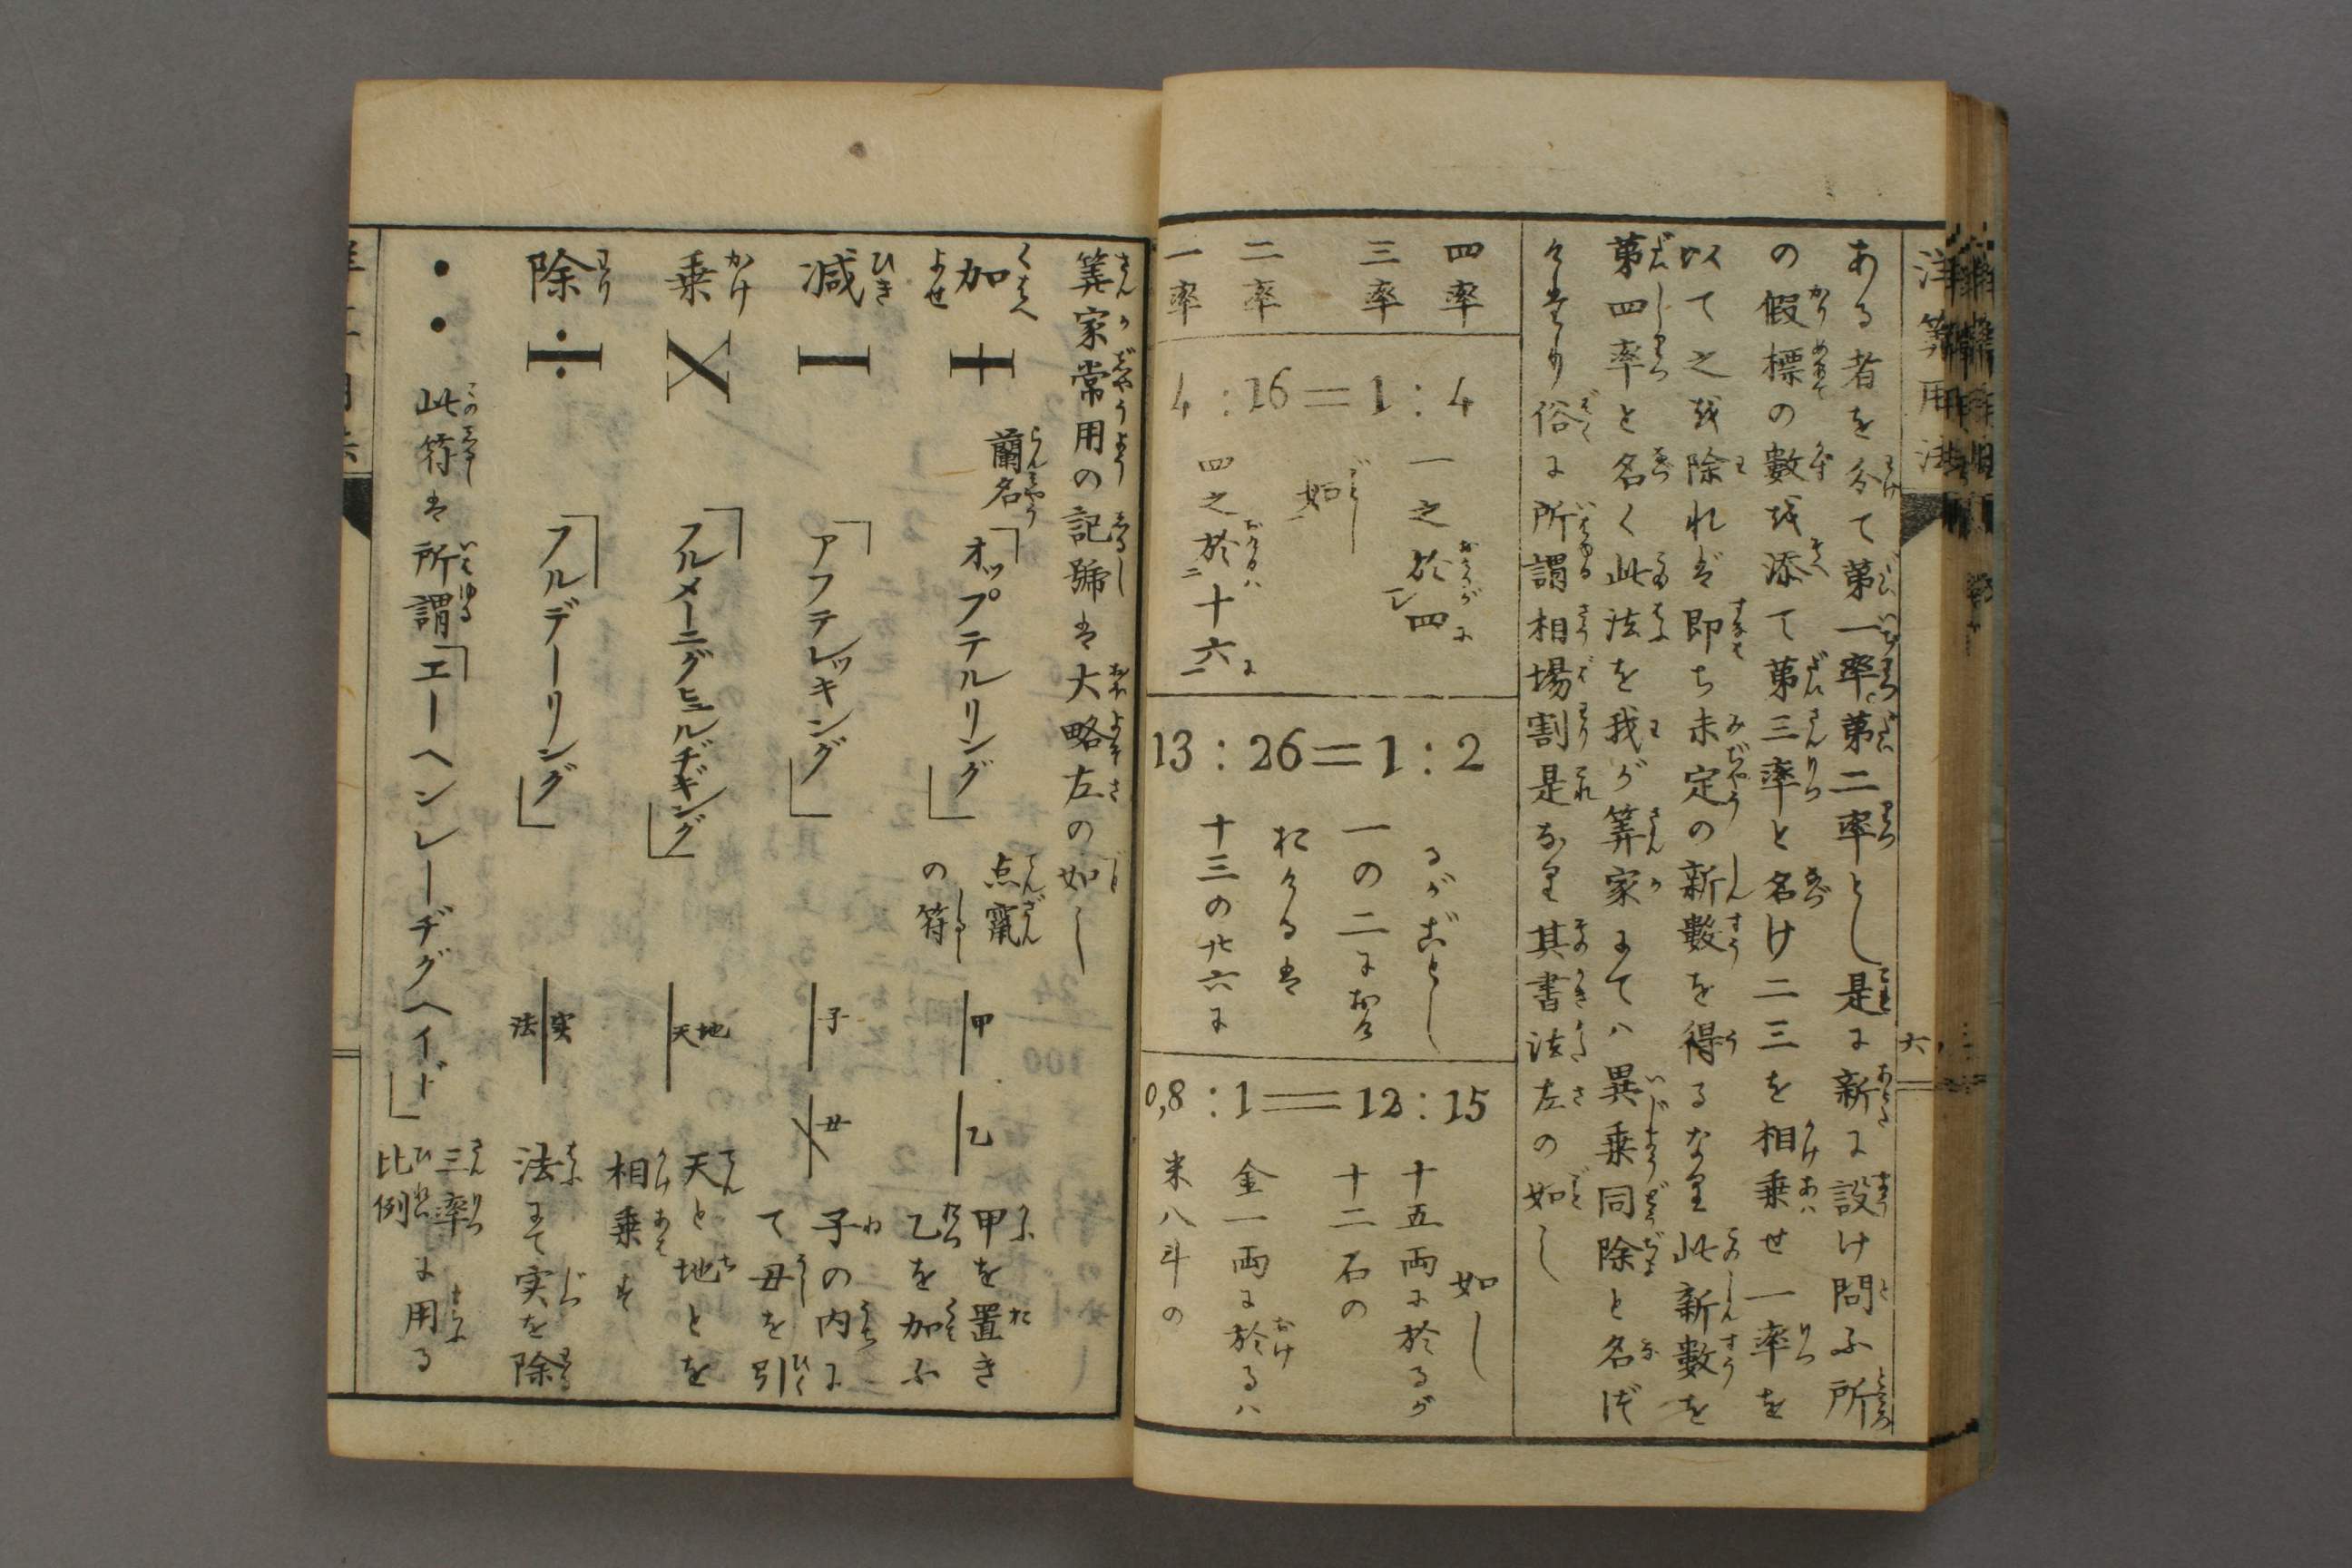 洋算用法
六
ある者を分て第一率第二率とし是に新に設け問ふ所
の假標の數を添て第三率と名け二三を相乗せ一率を
以て之を除れば即ち未定の新數を得るなり此新數を
第四率と名く此法を我が筭家にては異乗同除と名づ
くなり俗に所謂相場割是なり其書法左の如し
四率
三率
二率
一率
4 : 16 = 1 : 4
一之於レ四
如
四之於二十六一
13 : 26 = 1 : 2
るがごとし
一の二に於
おける者
十三の廿六に
0,8 : 1 = 12 : 15
如し
十五両に於るが
十二石の
金一両に於るハ
米八斗の
筭家常用の記號は大略左の如し
加 + 蘭名 「オップテルリング」 点竄の符 甲 乙 甲を置き乙を加ふ
減 − 「アフテレッキング」 子 丑 子の内にて丑を引
乗 × 「フルメーニグヒュルヂギング」 天地 天と地とを相乗す
除 ÷ 「フルデーリング」 法実 法にて実を除
・・ 此符は所謂「エーヘンレーヂグヘイド」 三率比例に用る